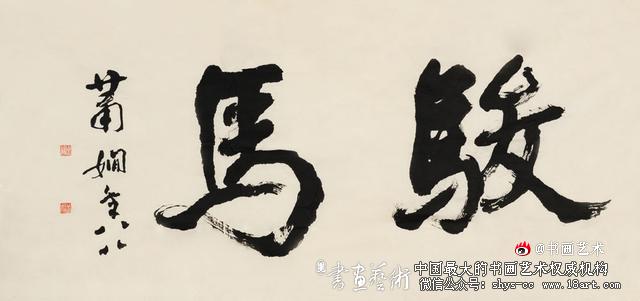 駿馬
蕭嫻年八八
@书画艺术
書畫藝術
中国最大的书画艺术权威机构
微信公众号：shys-cc www.18art.com